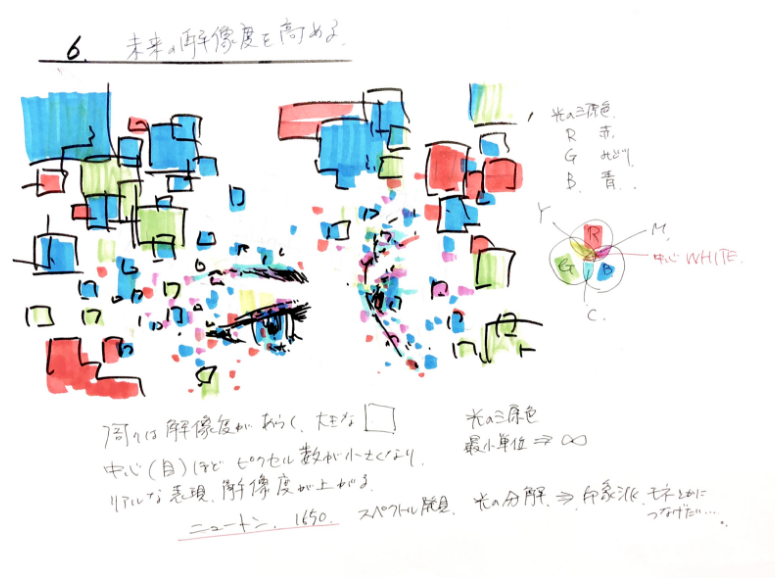 6. 未来の解像度を高める.
光の三原色.
R 赤.
G みどり.
B. 青..
Y
M.
R
中心 WHITE.
G
B
C.
周りは解像度があらく、大きな□
中心(目)ほどピクセル数が小さくなり.
リアルな表現.解像度が上がる.
光の三原色
最小単位⇒∞
ニュートン. 1650. スペクトル発見. 光の分解⇒印象派.モネとかに
つなげたい....